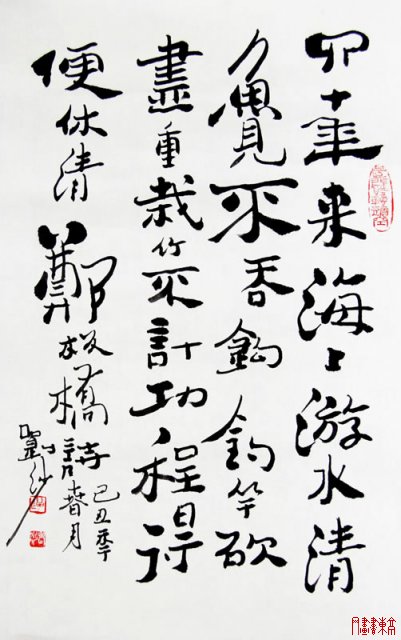 四十年来海上游水清
覺不吞鈎釣竿砍
盡重栽竹不計功程得
便休清鄭板橋詩
己丑季
春月
劉